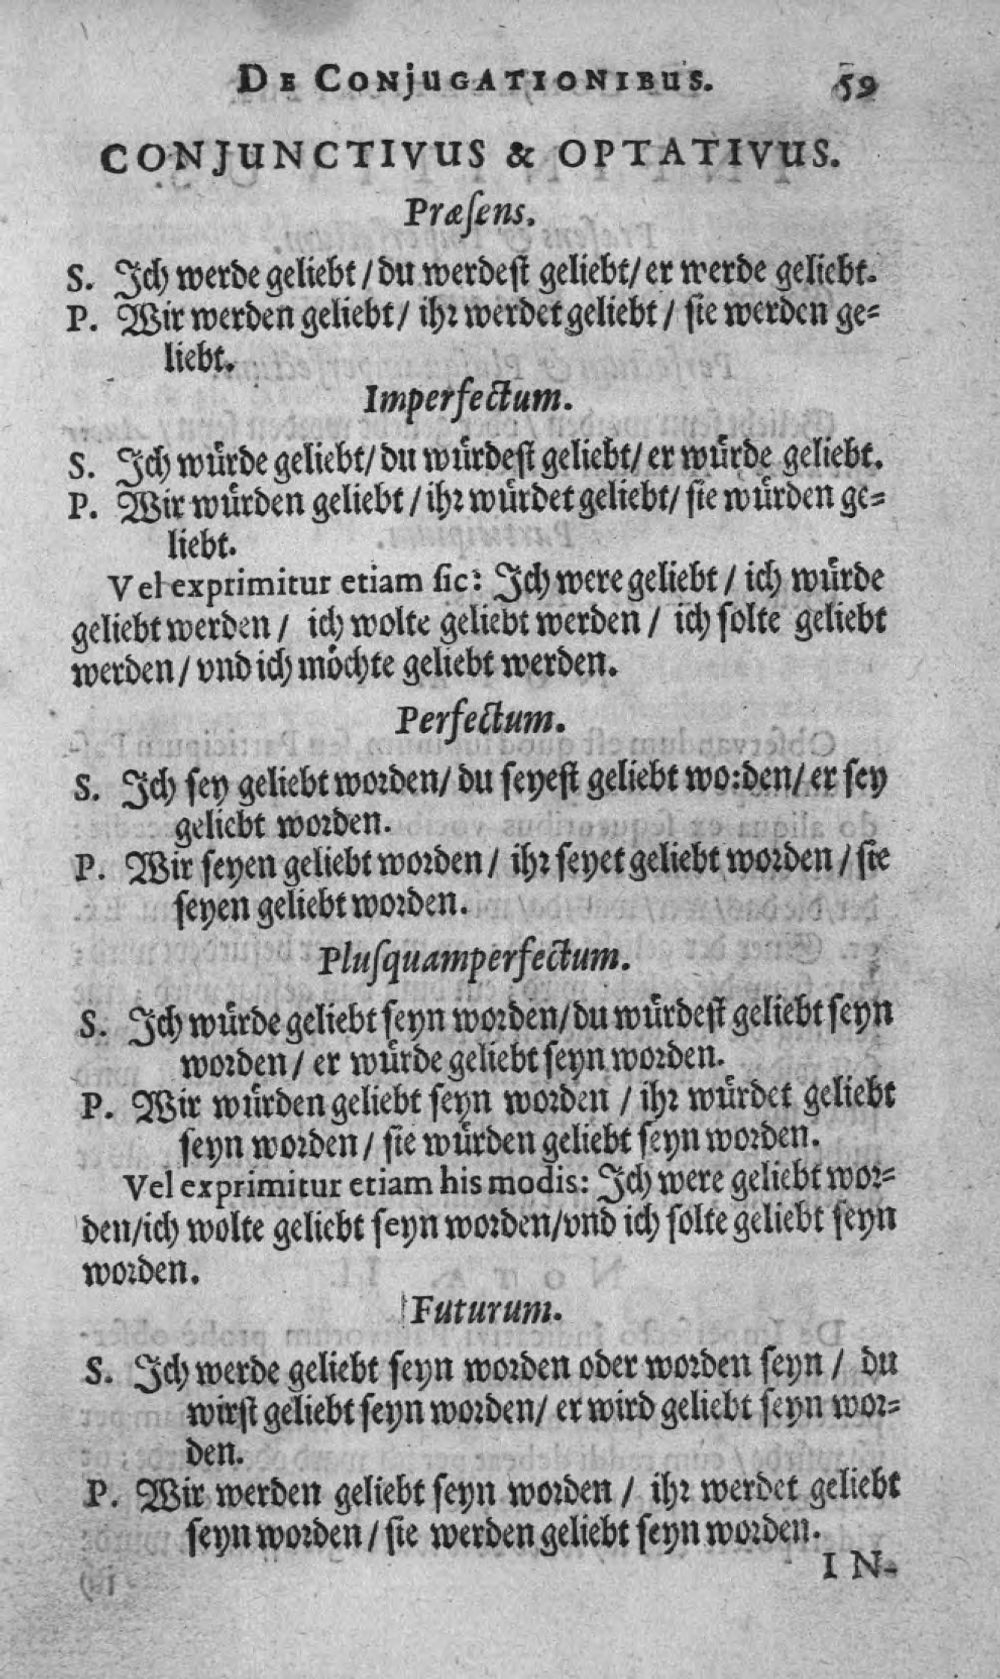 DE CONjUGATIONIBUS. 59
CONJUNCTIVUS & OPTATIVUS.
Præſens.
S. Ich werde geliebt / du werdeſt geliebt / er werde geliebt.
P. Wir werden geliebt / ihr werdet geliebt / ſie werden ge⸗
liebt.
Imperfectum.
S. Ich wuͤrde geliebt / du wuͤrdeſt geliebt / er wuͤrde geliebt.
P. Wir wuͤrden geliebt / ihr wuͤrdet geliebt / ſie wuͤrden ge⸗
liebt.
Vel exprimitur etiam ſic: Ich were geliebt / ich wuͤrde
geliebt werden / ich wolte geliebt werden / ich ſolte geliebt
werden / vnd ich moͤchte geliebt werden.
Perfectum.
S. Ich ſey geliebt worden / du ſeyeſt geliebt worden / er ſey
geliebt worden.
P. Wir ſeyen geliebt worden / ihr ſeyet geliebt worden / ſie
ſeyen geliebt worden.
Pluſquamperfectum.
S. Ich wuͤrde geliebt ſeyn worden / du wuͤrdeſt geliebt ſeyn
worden / er wuͤrde geliebt ſeyn worden.
P. Wir wuͤrden geliebt ſeyn worden / ihr wuͤrdet geliebt
ſeyn worden / ſie wuͤrden geliebt ſeyn worden.
Vel exprimitur etiam his modis: Ich were geliebt wor⸗
den / ich wolte geliebt ſeyn worden / vnd ich ſolte geliebt ſeyn
worden.
Futurum.
S. Ich werde geliebt ſeyn worden oder worden ſeyn / du
wirſt geliebt ſeyn worden / er wird geliebt ſeyn wor⸗
den.
P. Wir werden geliebt ſeyn worden / ihr werdet geliebt
ſeyn worden / ſie werden geliebt ſeyn worden.
IN-